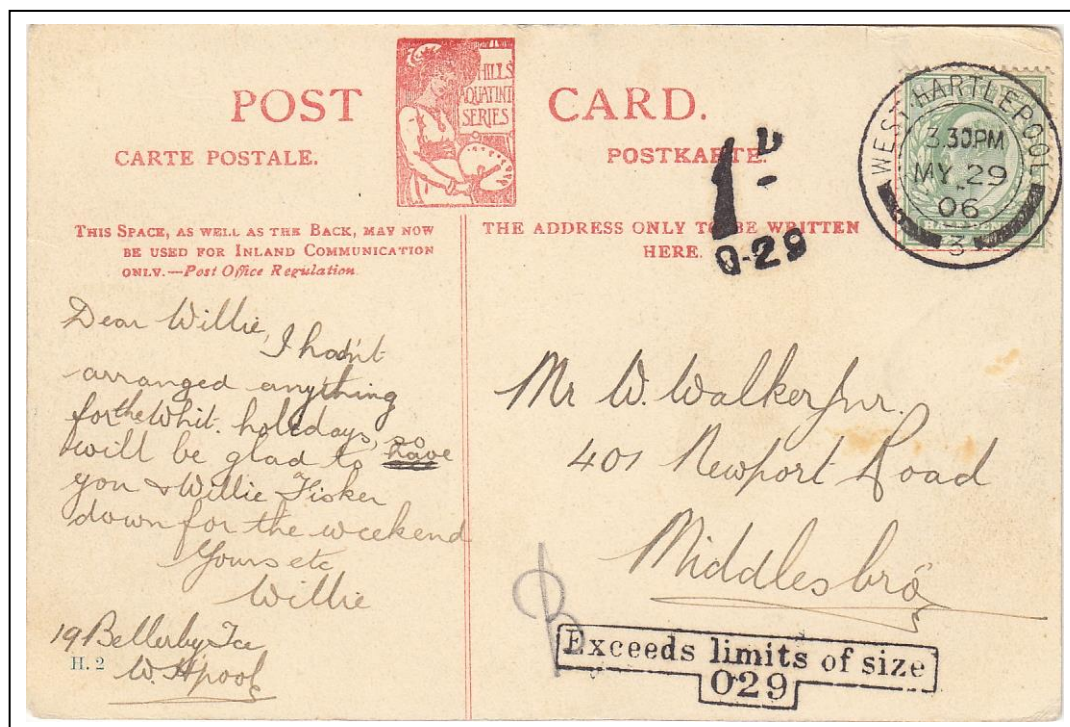 POST CARD.
HILLS
AQUATINT
SERIES
CARTE POSTALE.
POSTKARTE.
THIS SPACE, AS WELL AS THE BACK, MAY NOW
BE USED FOR INLAND COMMUNICATION
ONLY.—Post Office Regulation
THE ADDRESS ONLY TO BE WRITTEN
HERE.
1D
O-29
WEST HARTLEPOOL
3.30PM
MY 29
06
3
Dear Willie,
I hadn't
arranged anything
for the Whit. holidays, so
will be glad to have
you & Willie Fisker
down for the weekend
Yours etc
Willie
19 Bellerby Tce
W. H'pool
H. 2
Mr W. Walker Jnr.
401 Newport Road
Middlesbro
Exceeds limits of size
029